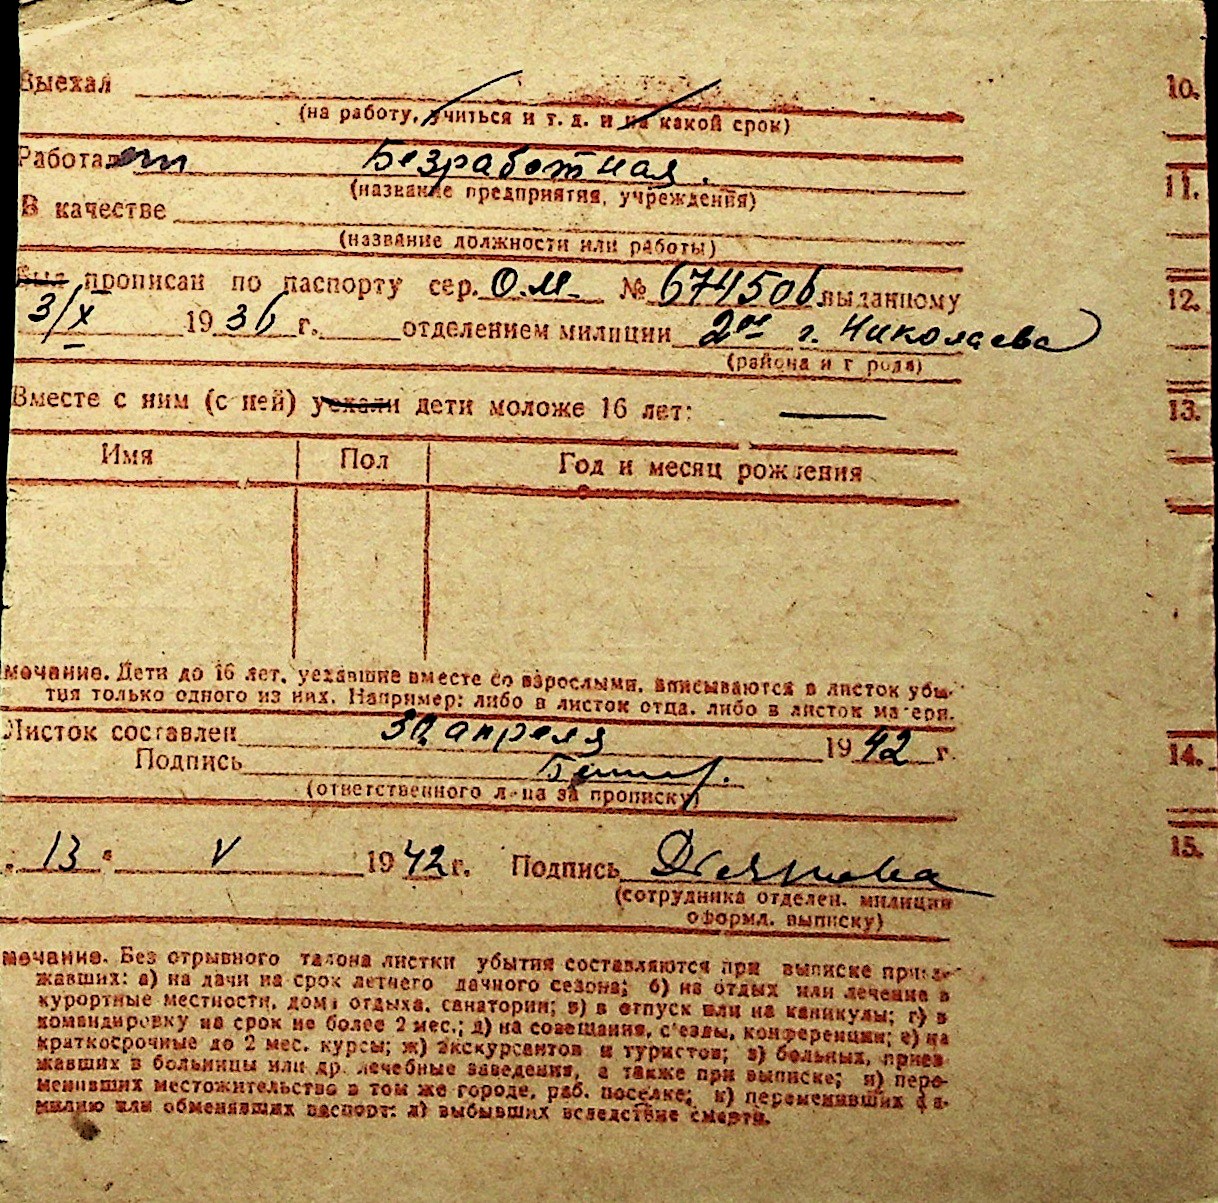 Выехал
(на работу, учиться и т. д. и на какой срок)
Работает Безработная.
(название предприятия, учреждения)
В качестве
(название должности или работы)
Был прописан по паспорту сер. О.М. № 674506 выданному
3/X 1936 г. отделением милиции 2ое г. Николаева
(района и города)
Вместе с ним (с ней) уехали дети моложе 16 лет: —
Имя Пол Год и месяц рождения
мечание. Дети до 16 лет, уехавшие вместе со взрослыми, вписываются в листок убы-
тия только одного из них. Например: либо в листок отца, либо в листок матери.
Листок составлен 30 апреля 1942 г.
Подпись
(ответственного лица за прописку)
„13“ V 1942 г. Подпись
(сотрудника отделен. милиции
оформл. выписку)
мечание. Без отрывного талона листки убытия составляются при выписке приез-
жавших: а) на дачи на срок летнего дачного сезона; б) на отдых или лечение в
курортные местности, дома отдыха, санатории; в) в отпуск или на каникулы; г) в
командировку на срок не более 2 мес.; д) на совещания, с'езды, конференции; е) на
краткосрочные до 2 мес. курсы; ж) экскурсантов и туристов; з) больных, приез-
жавших в больницы или др. лечебные заведения, а также при выписке; и) пере-
менивших местожительство в том же городе, раб. поселке; к) переменивших фа-
милию или обменявших паспорт; л) выбывших вследствие смерти.
10.
11.
12.
13.
14.
15.